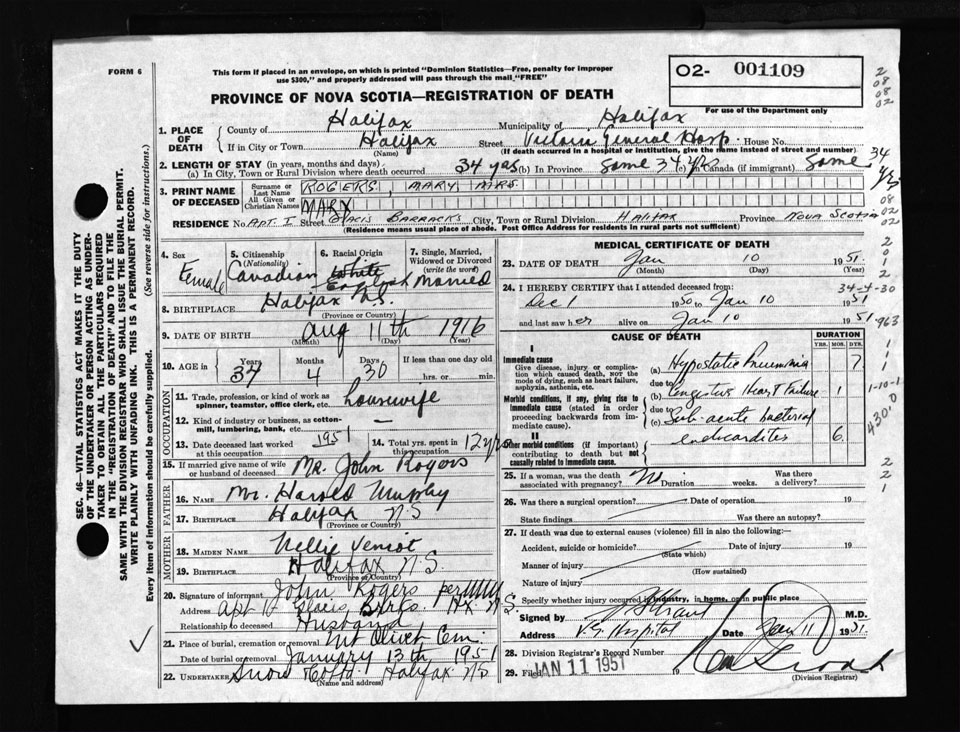 FORM 6
This form if placed in an envelope, on which is printed "Dominion Statistics—Free, penalty for improper
use $300," and properly addressed will pass through the mail "FREE"
02- 001109
For use of the Department only
PROVINCE OF NOVA SCOTIA—REGISTRATION OF DEATH
1. PLACE OF DEATH County of Halifax Municipality of Halifax
If in City or Town Halifax (Name) Street Victoria General Hosp House No.
(If death occurred in a hospital or institution, give the name instead of street and number)
2. LENGTH OF STAY (in years, months and days)
(a) In City, Town or Rural Division where death occurred 34 yrs (b) In Province Same 34 yrs (c) Canada (if immigrant) Same 34 yrs
3. PRINT NAME OF DECEASED Surname or Last Name ROGERS, MARY MRS.
All Given or Christian Names MARY
RESIDENCE No. APT. I Street GLACIS BARRACKS City, Town or Rural Division HALIFAX Province NOVA SCOTIA
(Residence means usual place of abode. Post Office Address for residents in rural parts not sufficient)
4. Sex Female
5. Citizenship (Nationality) Canadian
6. Racial Origin White English
7. Single, Married, Widowed or Divorced (write the word) Married
8. BIRTHPLACE Halifax N.S. (Province or Country)
9. DATE OF BIRTH Aug 11th 1916 (Month) (Day) (Year)
10. AGE in Years 34 Months 4 Days 30 If less than one day old hrs. or min.
OCCUPATION
11. Trade, profession, or kind of work as spinner, teamster, office clerk, etc. housewife
12. Kind of industry or business, as cotton-mill, lumbering, bank, etc. —
13. Date deceased last worked at this occupation 1951
14. Total yrs. spent in this occupation 12 yrs
15. If married give name of wife or husband of deceased Mr. John Rogers
FATHER
16. Name Mr. Harold Murphy
17. Birthplace Halifax N.S (Province or Country)
MOTHER
18. Maiden Name Nellie Veniot
19. Birthplace Halifax N.S. (Province or Country)
20. Signature of informant John Rogers per
Address Apt 1G Glacis Brks. Hx. N.S.
Relationship to deceased Husband
21. Place of burial, cremation or removal Mt Olivet Cem.
Date of burial or removal January 13th, 1951
22. Undertaker Snow Co Ltd. Halifax NS
(Name and address)
MEDICAL CERTIFICATE OF DEATH
23. DATE OF DEATH Jan 10 1951.
(Month) (Day) (Year)
24. I HEREBY CERTIFY that I attended deceased from:
Dec 1 1950 to Jan 10 1951
and last saw her alive on Jan 10 1951
CAUSE OF DEATH
DURATION
YRS. MOS. DYS.
I
Immediate cause
Give disease, injury or complication which caused death, NOT the mode of dying, such as heart failure, asphyxia, asthenia, etc.
(a) Hypostatic Pneumonia 7
due to
Morbid conditions, if any, giving rise to immediate cause (stated in order proceeding backwards from immediate cause).
(b) Congestive Heart Failure 1
due to
(c) Sub-acute bacterial
endocarditis 6
II
Other morbid conditions (if important) contributing to death but not causally related to immediate cause.
25. If a woman, was the death associated with pregnancy? No Duration weeks. Was there a delivery?
26. Was there a surgical operation? Date of operation 19
State findings Was there an autopsy?
27. If death was due to external causes (violence) fill in also the following:—
Accident, suicide or homicide? (State which) Date of injury 19
Manner of injury (How sustained)
Nature of injury
Specify whether injury occurred in industry, in home, or in public place
Signed by M.D.
Address V.G. Hospital Date Jan 11 1951.
28. Division Registrar's Record Number
29. Filed JAN 11 1951
(Division Registrar)
34-4-30
963
1-10-1
430.0
SEC. 46—VITAL STATISTICS ACT MAKES IT THE DUTY
OF THE UNDERTAKER OR PERSON ACTING AS UNDER-
TAKER TO OBTAIN ALL THE PARTICULARS REQUIRED
IN THE "REGISTRATION OF DEATH" AND TO FILE THE
SAME WITH THE DIVISION REGISTRAR WHO SHALL ISSUE THE BURIAL PERMIT.
WRITE PLAINLY WITH UNFADING INK. THIS IS A PERMANENT RECORD.
Every item of information should be carefully supplied. (See reverse side for instructions.)